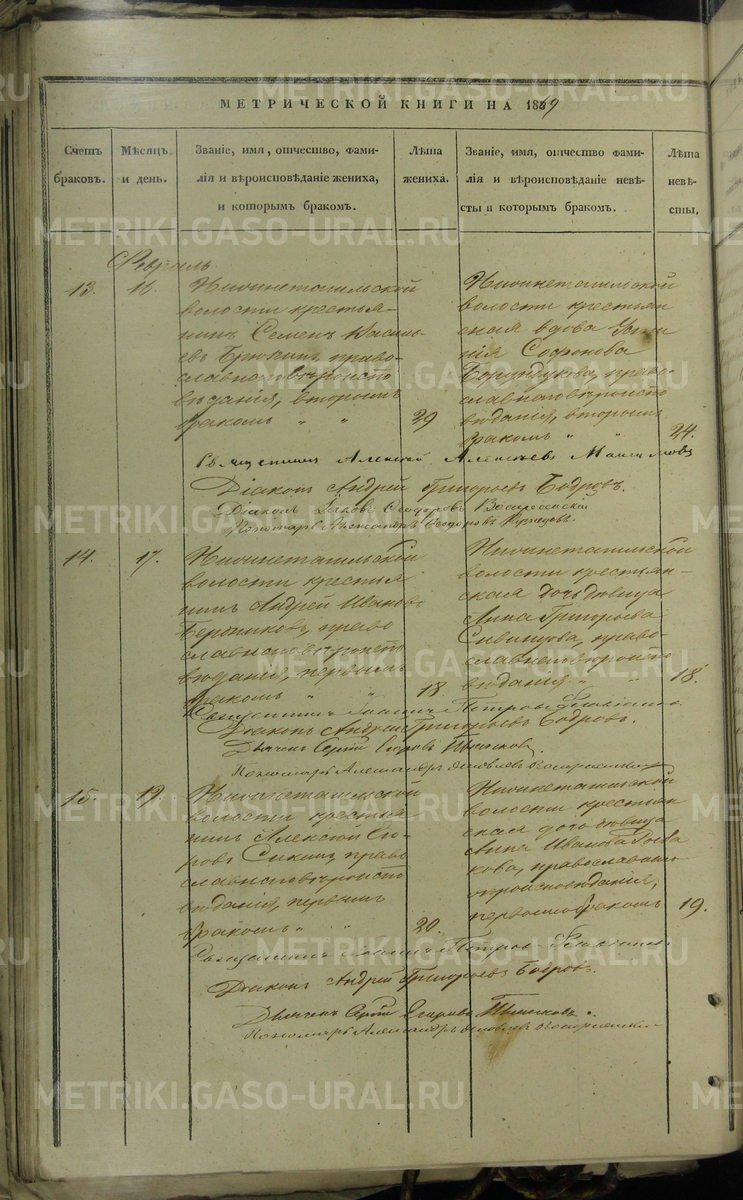 МЕТРИЧЕСКОЙ КНИГИ НА 1869
Счетъ браковъ.
Мѣсяцъ и день.
Званіе, имя, отчество, фами-
лія и вѣроисповѣданіе жениха,
и которымъ бракомъ.
Лѣта
жениха.
Званіе, имя, отчество фами-
лія и вѣроисповѣданіе невѣ-
сты и которымъ бракомъ.
Лѣта
невѣ-
сты,
Февраль
13. 16.
Нижнетагильской
волости крестья-
нинъ Семенъ Василь
евъ православнаго вѣроиспо
вѣданія, вторымъ
бракомъ " "
29
Нижнетагильской
волости крестьян
ская вдова
Софонова
право
славнаго вѣроиспо
вѣданія, вторымъ
бракомъ " "
24.
Священникъ Алексѣй Алексѣевъ
Діаконъ Андрей Григорьевъ Бобровъ.
Діаконъ Яковъ Ѳеодоровъ Воскресенскій
Пономарь Александръ
14. 17.
Нижнетагильской
волости крестья
нинъ Андрей Ивановъ
право
славнаго вѣроиспо
вѣданія, первымъ
бракомъ " "
18
Нижнетагильской
волости крестьян-
ская дочь дѣвица
Анна Григорьева
право-
славнаго вѣроиспо
вѣданія " "
18.
Священникъ Іоаннъ Петровъ
Діаконъ Андрей Григорьевъ Бобровъ.
Дьячекъ Сергій Егоровъ
Пономарь Александръ Яковлевъ Воскресенскій
15. 19.
Нижнетагильской
волости крестья
нинъ Алексѣй Его
ровъ право
славнаго вѣроиспо
вѣданія, первымъ
бракомъ " "
20.
Нижнетагильской
волости крестьян
ская дочь дѣвица
Анна Иванова
кова, православнаго
вѣроисповѣданія,
первымъ бракомъ
19.
Священникъ Іоаннъ Петровъ
Діаконъ Андрей Григорьевъ Бобровъ.
Дьячекъ Сергій Егоровъ
Пономарь Александръ Яковлевъ Воскресенскій
METRIKI.GASO-URAL.RU